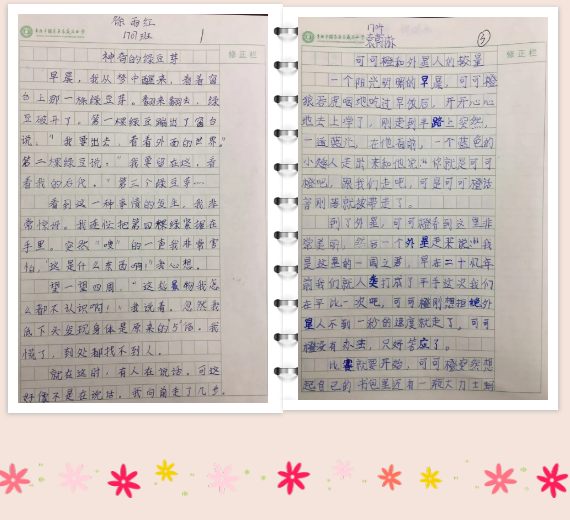 徐雨红
1701班
1
修正栏
神奇的绿豆芽
早晨,我从梦中醒来,看着窗
台上那一棵绿豆芽。翻来翻去,绿
豆破开了。第一棵绿豆蹦出了窗台
说:"我要出去,看看外面的世界。"
第二棵绿豆说:"我要留在这,看
看我的后代。"第三个绿豆芽…
看到这一种事情的发生,我非
常惊讶。我连忙把第四棵绿紧握在
手里。突然"噗"的一声我非常害
怕,"这是什么东西啊!"我心想。
望一望四周,"这些景物我怎
么都不认识啊!"我说着。忽然我
低下头发现身体是原来的1/5倍。我
慌了,到处都找不到人。
就在这时,有人在说话。可这
好像不是在说话。我向前走了几步,
17班
3
修正栏
可可橙和外星人的较量
一个阳光明媚的早晨,可可橙
狼吞虎咽地吃过早饭后,开开心心
地去上学了,刚走到半路上突然,
一道蓝光,在他面前,一个蓝色的
小矮人走出来和他说"你就是可可
橙吧,跟我们走吧,可是可可橙话
音刚落就被带走了。
到了外星,可可橙看到这里非
常美丽,然后一个外星走来说:"我
是这里的一国之君,早在二十几年
前我们就人类打成了平手这次我们
在平比一次吧,可可橙刚想拒绝外
星人不到一秒的速度就走了,可可
橙没有办法,只好答应了。
比赛就要开始,可可橙突然想
起自己的书包里还有一瓶大力士